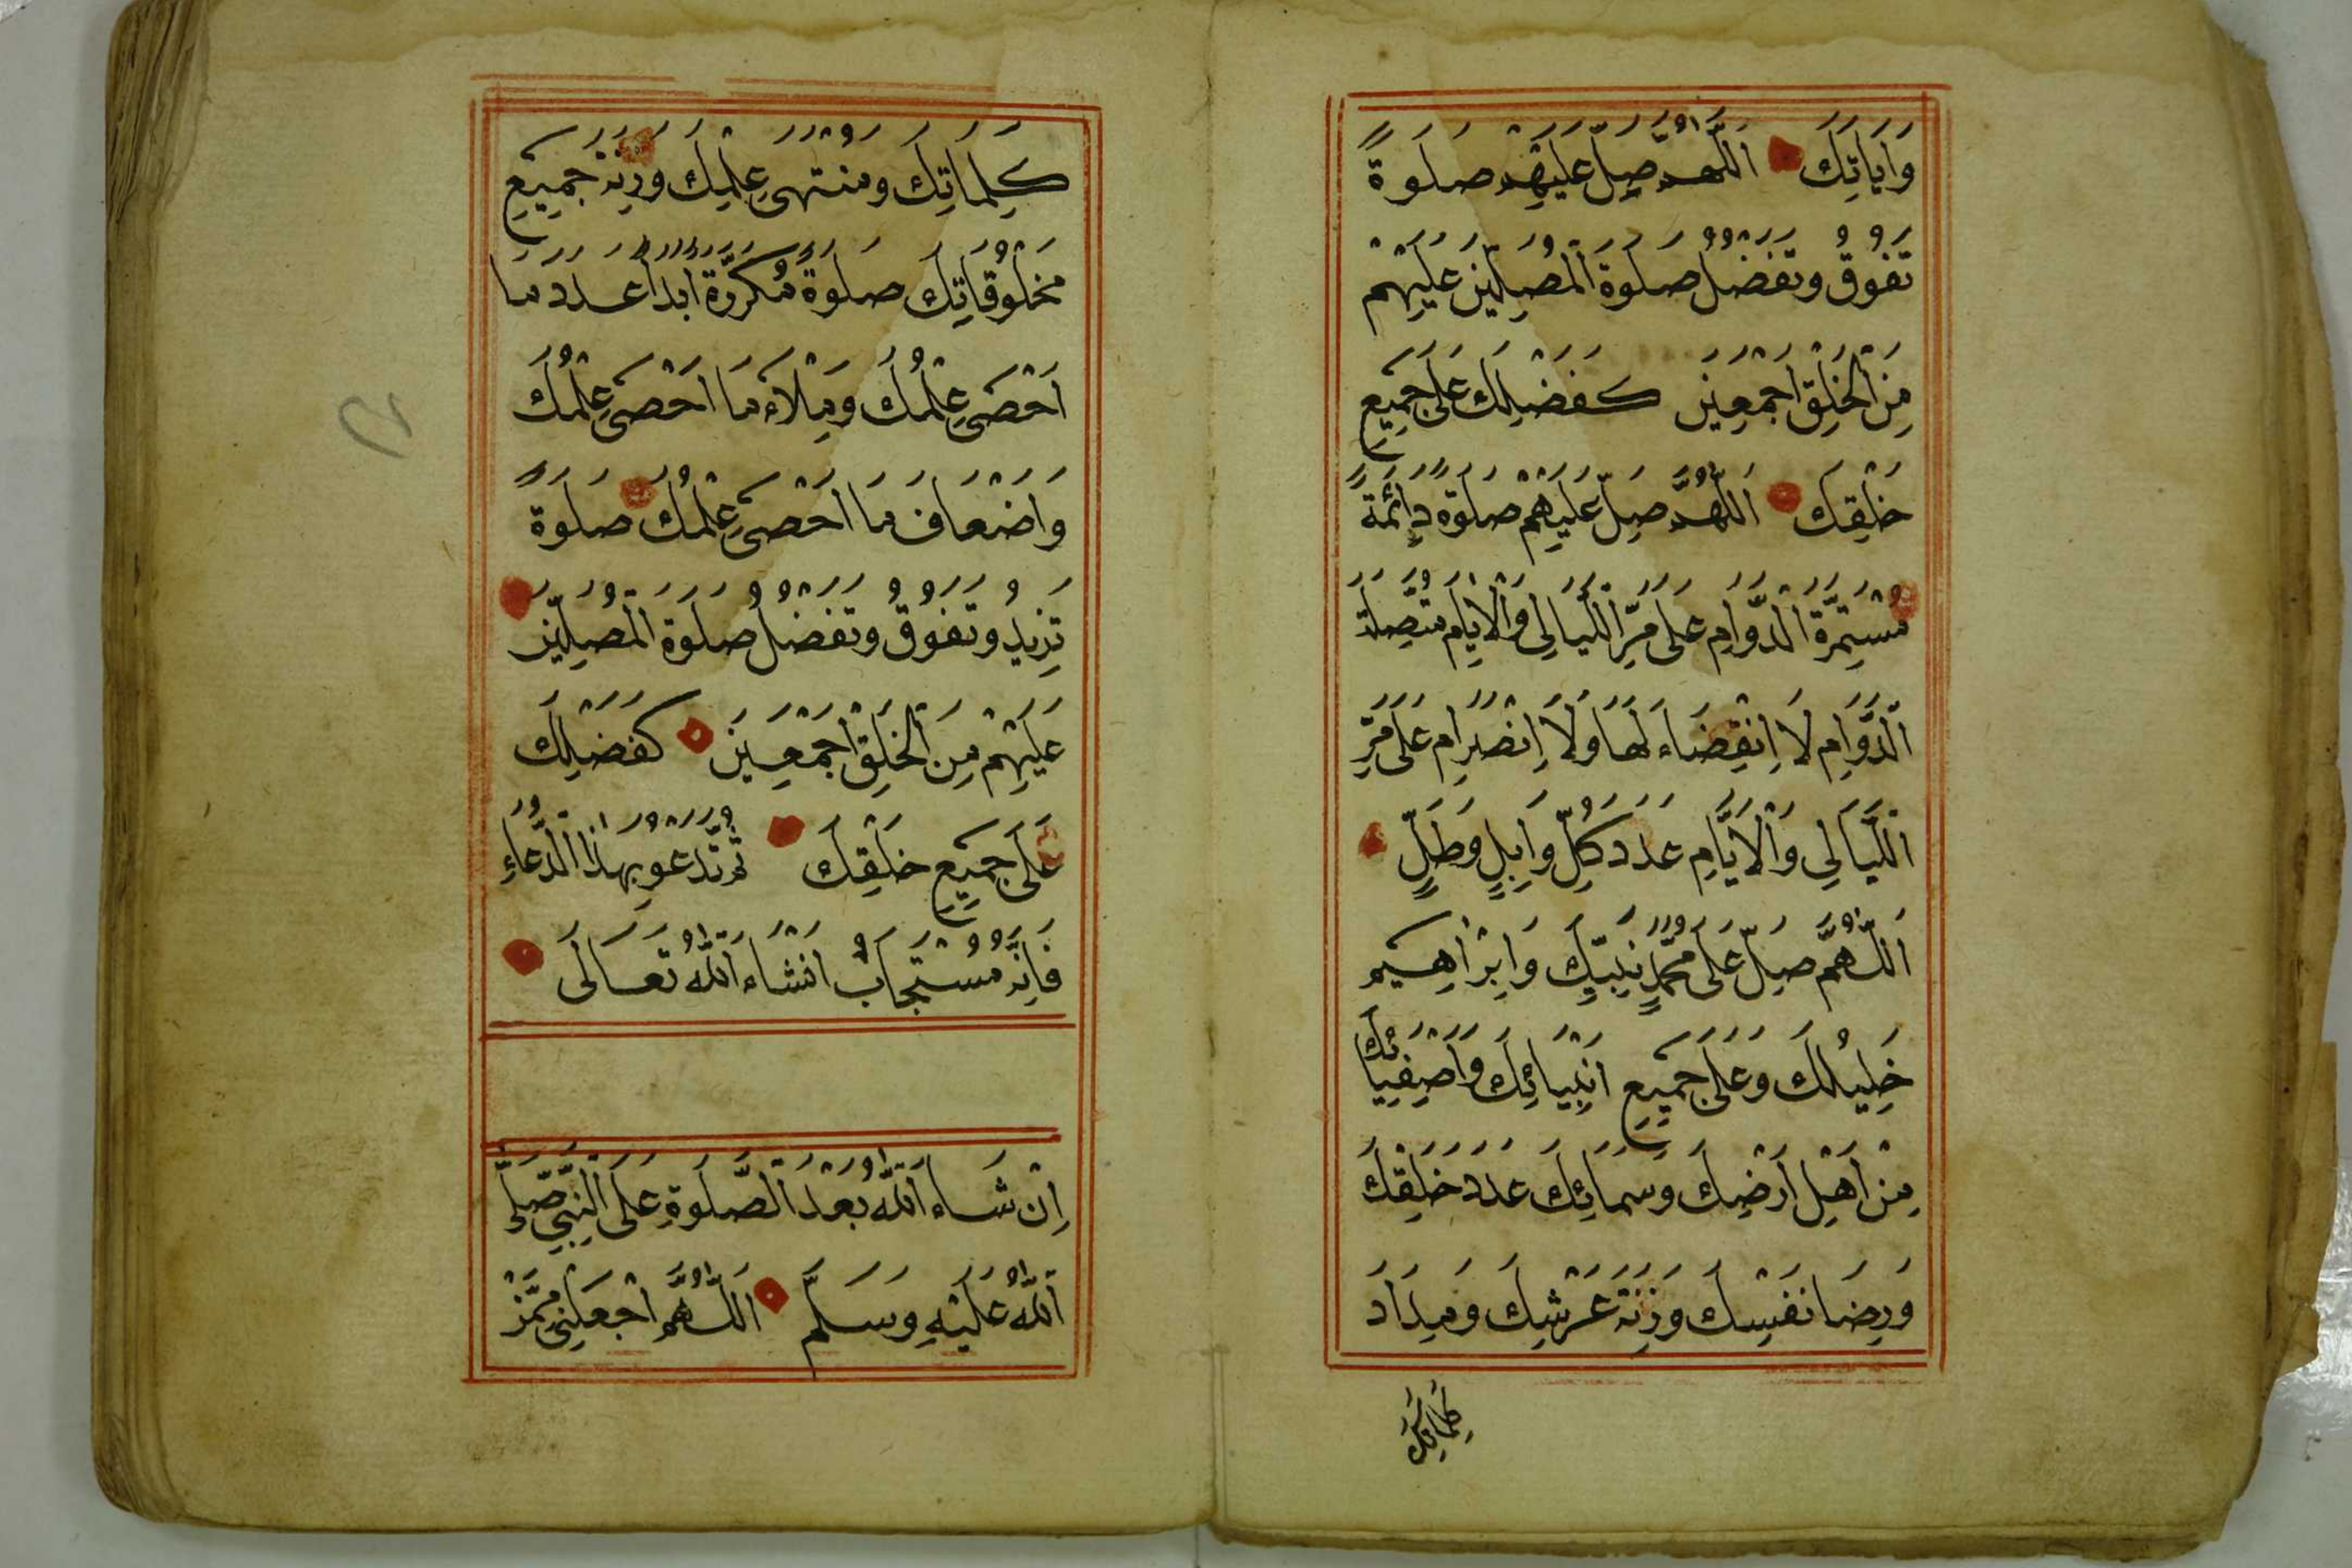 وَاٰيَاتِكَ اَللّٰهُمَّ صَلِّ عَلَيْهِمْ صَلٰوةً
تَفُوْقُ وَتَفْضُلُ صَلٰوةَ الْمُصَلِّيْنَ عَلَيْهِمْ
مِنَ الْخَلْقِ اَجْمَعِيْنَ كَفَضْلِكَ عَلٰى جَمِيْعِ
خَلْقِكَ اَللّٰهُمَّ صَلِّ عَلَيْهِمْ صَلٰوةً دَائِمَةً
مُسْتَمِرَّةَ الدَّوَامِ عَلٰى مَرِّ اللَّيَالِى وَالْاَيَّامِ مُتَّصِلَةَ
الدَّوَامِ لَا اِنْقِضَاءَ لَهَا وَلَا اِنْصِرَامَ عَلٰى مَرِّ
اللَّيَالِى وَالْاَيَّامِ عَدَدَ كُلِّ وَابِلٍ وَطَلٍّ
اَللّٰهُمَّ صَلِّ عَلٰى مُحَمَّدٍ نَبِيِّكَ وَاِبْرَاهِيْمَ
خَلِيْلِكَ وَعَلٰى جَمِيْعِ اَنْبِيَائِكَ وَاَصْفِيَائِكَ
مِنْ اَهْلِ اَرْضِكَ وَسَمَائِكَ عَدَدَ خَلْقِكَ
وَرِضَا نَفْسِكَ وَزِنَةَ عَرْشِكَ وَمِدَادَ
كَلِمَاتِكَ
كَلِمَاتِكَ وَمُنْتَهٰى عِلْمِكَ وَزِنَةَ جَمِيْعِ
مَخْلُوْقَاتِكَ صَلٰوةً مُكَرَّرَةً اَبَدًا عَدَدَ مَا
اَحْصٰى عِلْمُكَ وَمِلْاءَ مَا اَحْصٰى عِلْمُكَ
وَاَضْعَافَ مَا اَحْصٰى عِلْمُكَ صَلٰوةً
تَزِيْدُ وَتَفُوْقُ وَتَفْضُلُ صَلٰوةَ الْمُصَلِّيْنَ
عَلَيْهِمْ مِنَ الْخَلْقِ اَجْمَعِيْنَ كَفَضْلِكَ
عَلٰى جَمِيْعِ خَلْقِكَ ثُمَّ تَدْعُو بِهٰذَا الدُّعَاءِ
فَاِنَّهُ مُسْتَجَابٌ اِنْشَاءَ اللّٰهُ تَعَالٰى
اِنْ شَاءَ اللّٰهُ بَعْدَ الصَّلٰوةِ عَلَى النَّبِىِّ صَلَّى
اللّٰهُ عَلَيْهِ وَسَلَّمَ اَللّٰهُمَّ اجْعَلْنِىْ مِمَّنْ